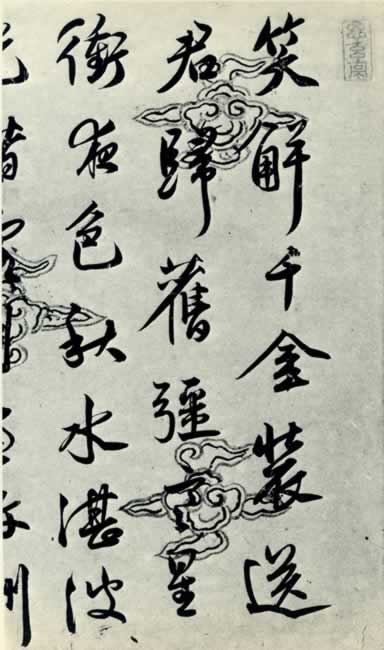 笑解千金裝送
君歸舊疆文星
衝夜色秋水湛波